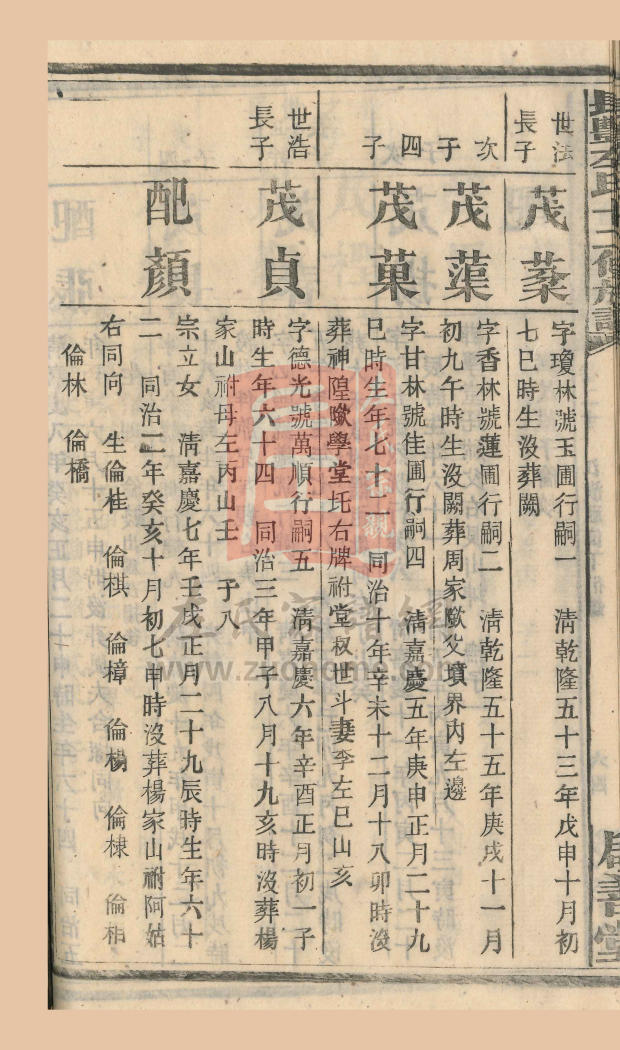 世法
長子
茂蓁
字瓊林號玉圃行嗣一 清乾隆五十三年戊申十月初
七巳時生沒葬闕
次
子
茂蕖
字香林號蓮圃行嗣二 清乾隆五十五年庚戌十一月
初九午時生沒闕葬周家㘵父墳界內左邊
四
子
茂菓
字甘林號佳圃行嗣四 清嘉慶五年庚申正月二十九
巳時生年七十二 同治十年辛未十二月十八卯時沒
葬神隍㘵學堂圫右牌祔堂叔世斗妻李左巳山亥
世浩
長子
茂貞
字德光號萬順行嗣五 清嘉慶六年辛酉正月初一子
時生年六十四 同治三年甲子八月十九亥時沒葬楊
家山祔母左丙山壬 子八
配顏
宗立女 清嘉慶七年壬戌正月二十九辰時生年六十
二 同治二年癸亥十月初七申時沒葬楊家山祔阿姑
右同向 生倫桂 倫棋 倫樟 倫楊 倫棟 倫柏
倫林 倫橋
左氏家譜網
www.zzgnome.com